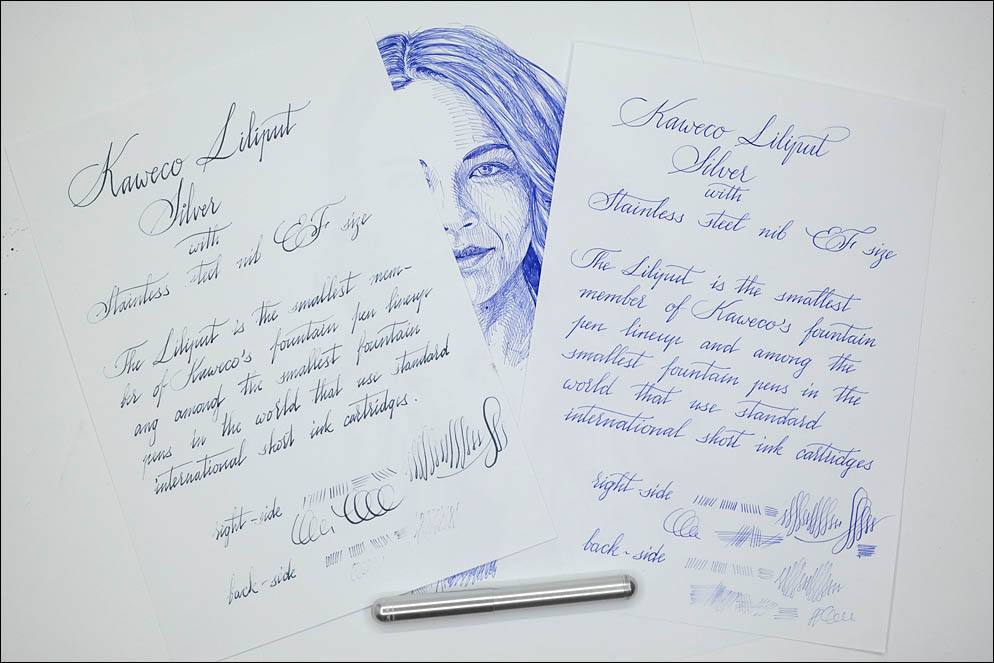 Kaweco Liliput
Silver
with
Stainless steel nib EF size
The Liliput is the smallest mem-
ber of Kaweco's fountain pen lineup
ang among the smallest fountain
pens in the world that use standard
international short ink cartridges.
right-side
back-side
Kaweco Liliput
Silver
with
Stainless steel nib EF size
The Liliput is the smallest
member of Kaweco's fountain
pen lineup and among the
smallest fountain pens in the
world that use standard
international short ink cartridges
right-side
back-side